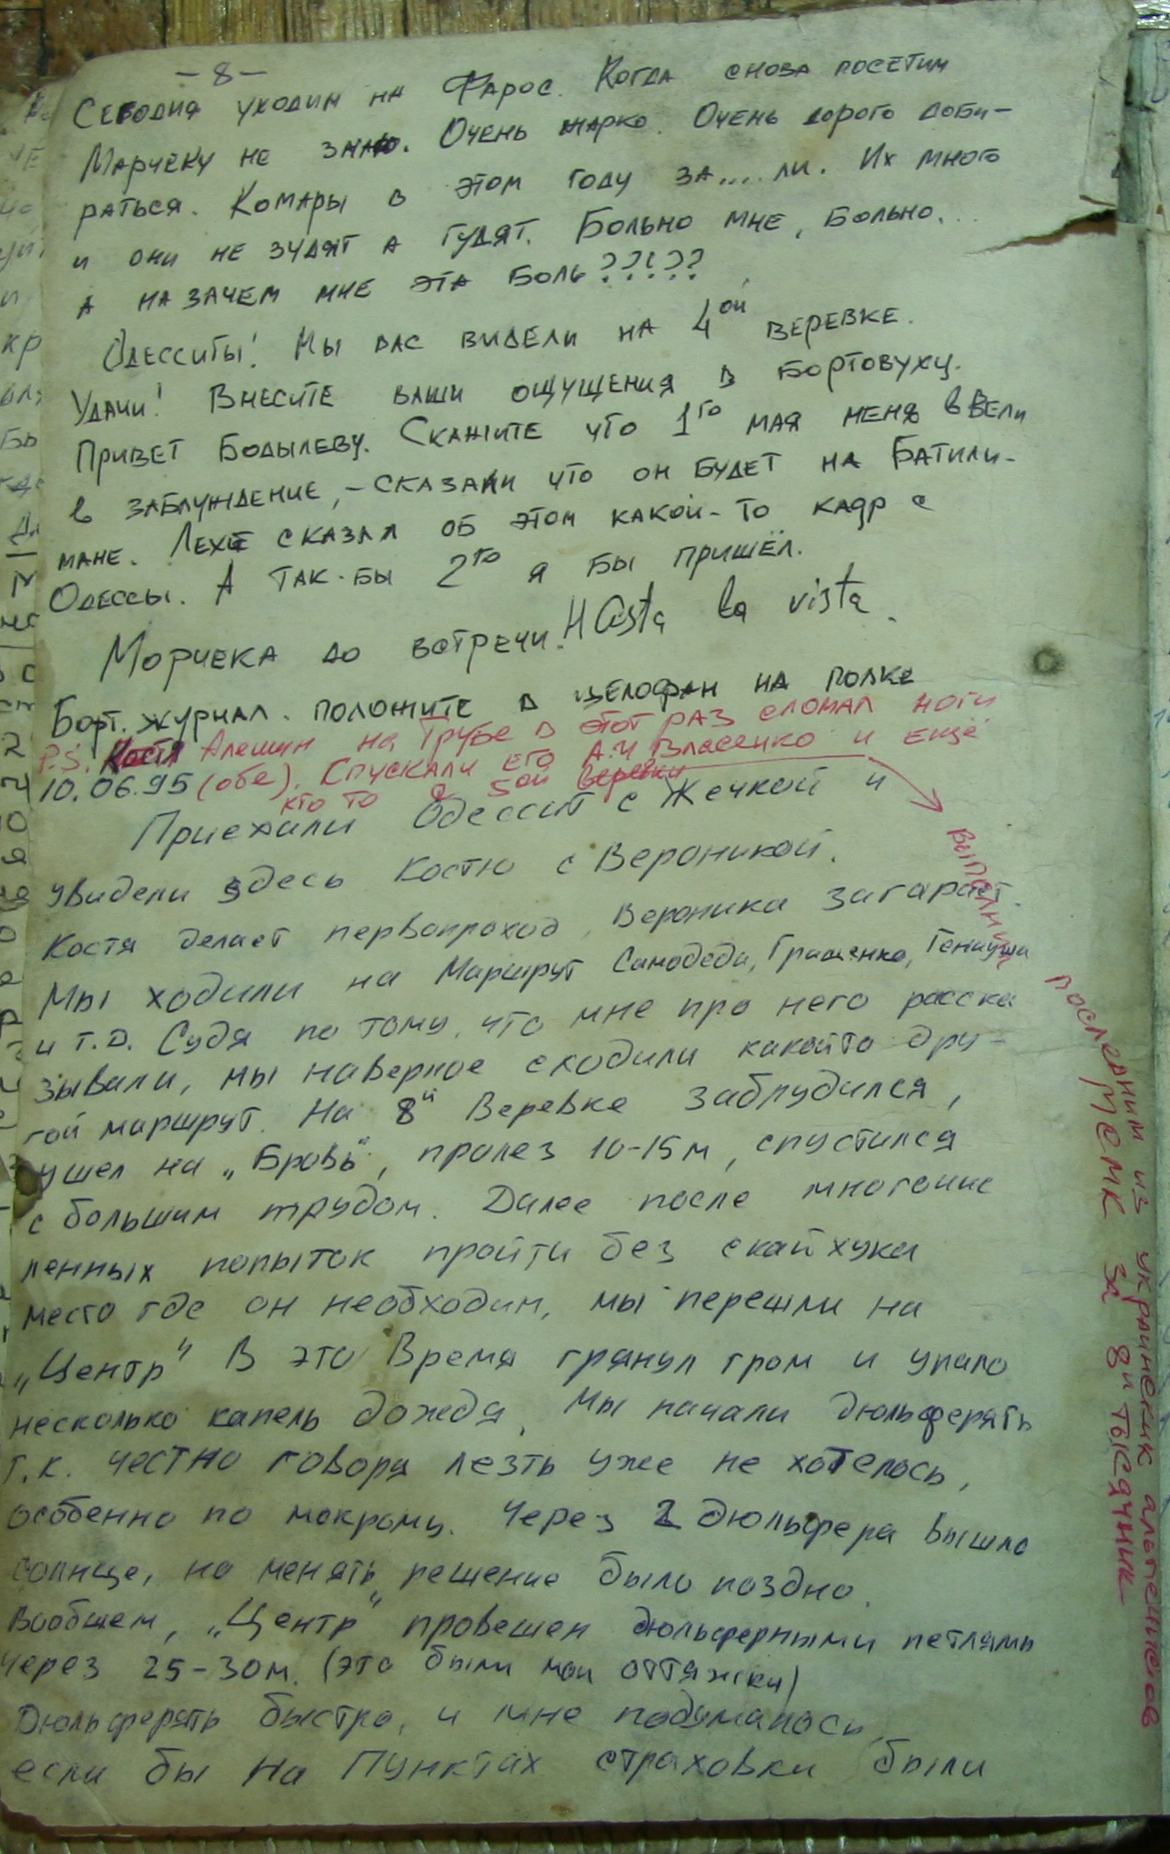 - 8 -
Сегодня уходим на Фарос. Когда снова посетим
Марчеку не знаю. Очень жарко. Очень дорого доби-
раться. Комары в этом году за....ли. Их много
и они не зудят а гудят. Больно мне, больно...
А на зачем мне эта боль??!??
Одесситы! Мы вас видели на 4ой веревке.
Удачи! Внесите ваши ощущения в бортовуху.
Привет Бодылеву. Скажите что 1го мая меня ввели
в заблуждение, - сказали что он будет на Батили-
мане. Лехе сказал об этом какой-то кадр с
Одессы. А так-бы 2го я бы пришёл.
Морчека до встречи. Hasta la vista.
Борт. журнал. положите в целофан на полке
P.S. Костя Алешин на Трубе в этот раз сломал ноги
(обе). Спускали его А.Ч Власенко и ещё
кто то с 5ой веревки
выполнил последним из украинских альпинистов
МСМК за 8и тысячник
10.06.95
Приехали Одессит с Жечкой и
увидели здесь Костю с Вероникой.
Костя делает первопроход, Вероника загарает.
Мы ходили на маршрут Самодеда, Грищенко, Генауша
и т.д. Судя по тому, что мне про него расска
зывали, мы наверное сходили какойто дру-
гой маршрут. На 8й Веревке заблудился,
ушел на „Бровь", пролез 10-15м, спустился
с большим трудом. Далее после многочис
ленных попыток пройти без скайхука
место где он необходим, мы перешли на
„Центр" В это Время грянул гром и упало
несколько капель дождя, Мы начали дюльферять
т.к. честно говоря лезть уже не хотелось,
особенно по мокрому. Через 2 дюльфера вышло
солнце, но менять решение было поздно.
Вообщем, „Центр" провешен дюльферными петлями
через 25-30м. (это были мои оттяжки)
Дюльферять быстро, и мне подумалось,
если бы на Пунктах страховки были